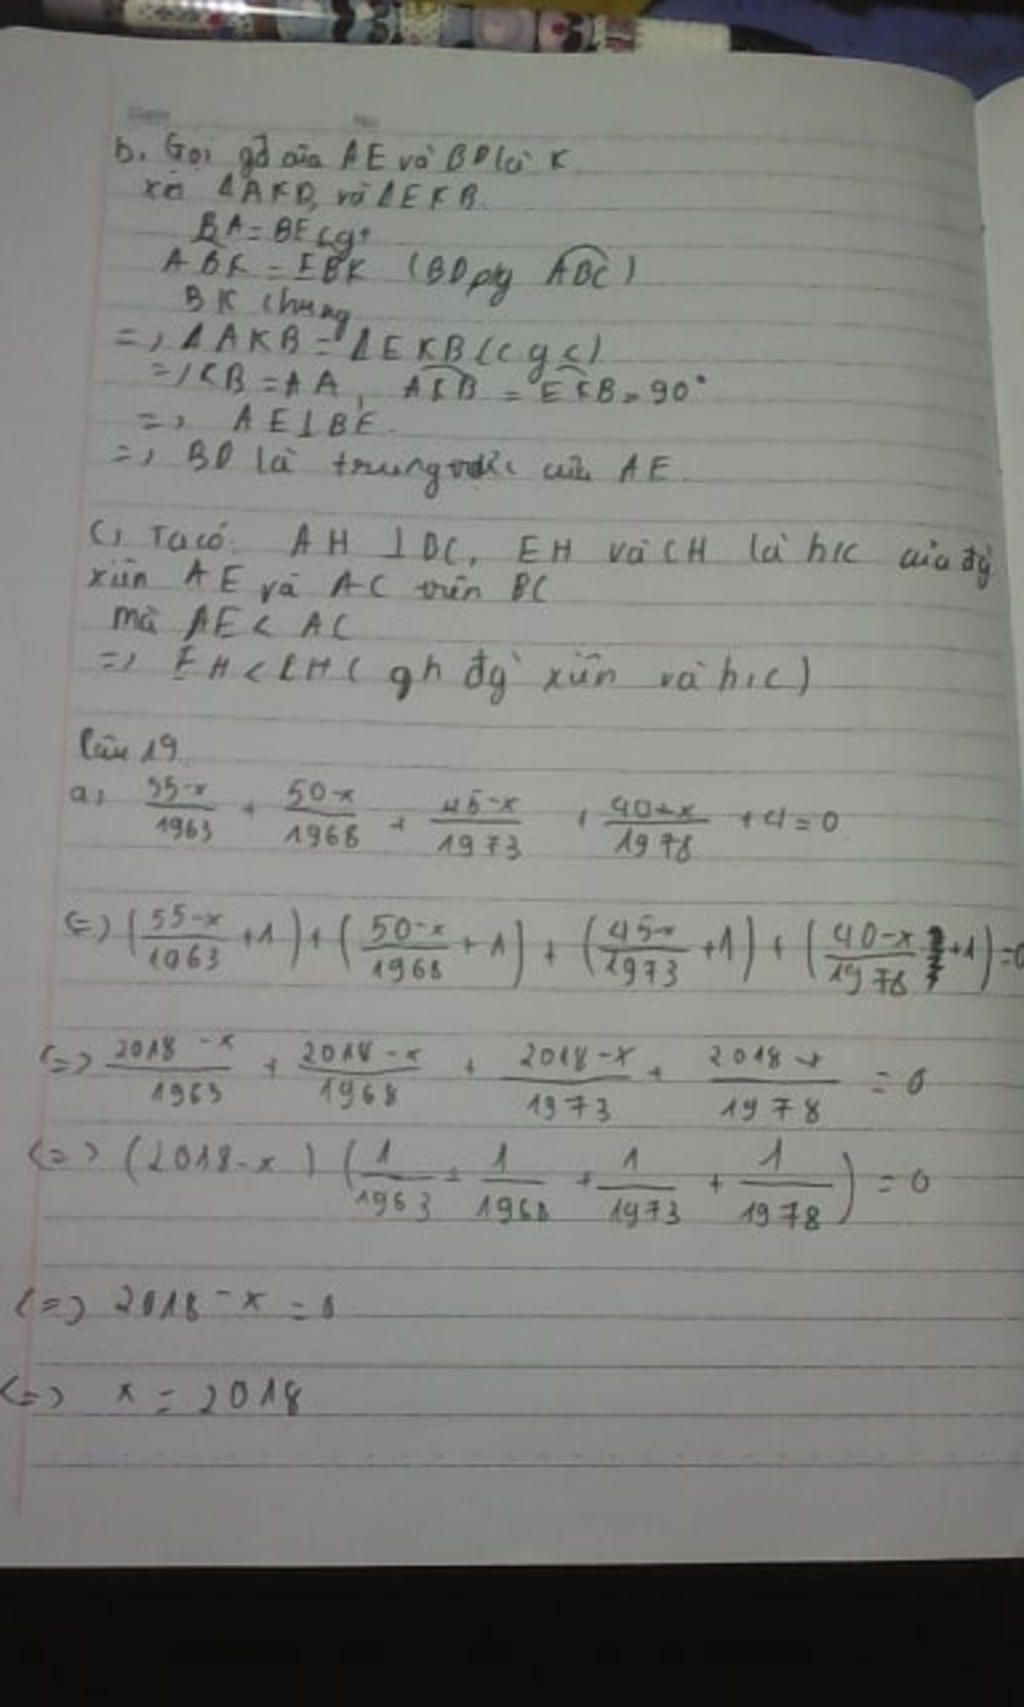 b. Gọi gđ của AE và BD là K
xét ΔAKD, và ΔEKB
BA = BE (gt
ABK = EBK (BD pg ABC)
BK chung
=> ΔAKB = ΔEKB (c g c)
=> KB = AA, AKB = EKB = 90°
=> AE ⊥ BE.
=> BD là trung trực của AE
c, Ta có: AH ⊥ DC, EH và CH là h/c của đg
xiên AE và AC trên BC
mà AE < AC
=> EH < EH ( qh đg xiên và h/c)
Câu 19
a, 55-x/1963 + 50-x/1968 + 45-x/1973 + 40-x/1978 + 4 = 0
<=> (55-x/1963 + 1) + (50-x/1968 + 1) + (45-x/1973 + 1) + (40-x/1978 + 1) = 0
<=> 2018-x/1963 + 2018-x/1968 + 2018-x/1973 + 2018-x/1978 = 0
<=> (2018-x) (1/1963 + 1/1968 + 1/1973 + 1/1978) = 0
<=> 2018 - x = 0
<=> x = 2018